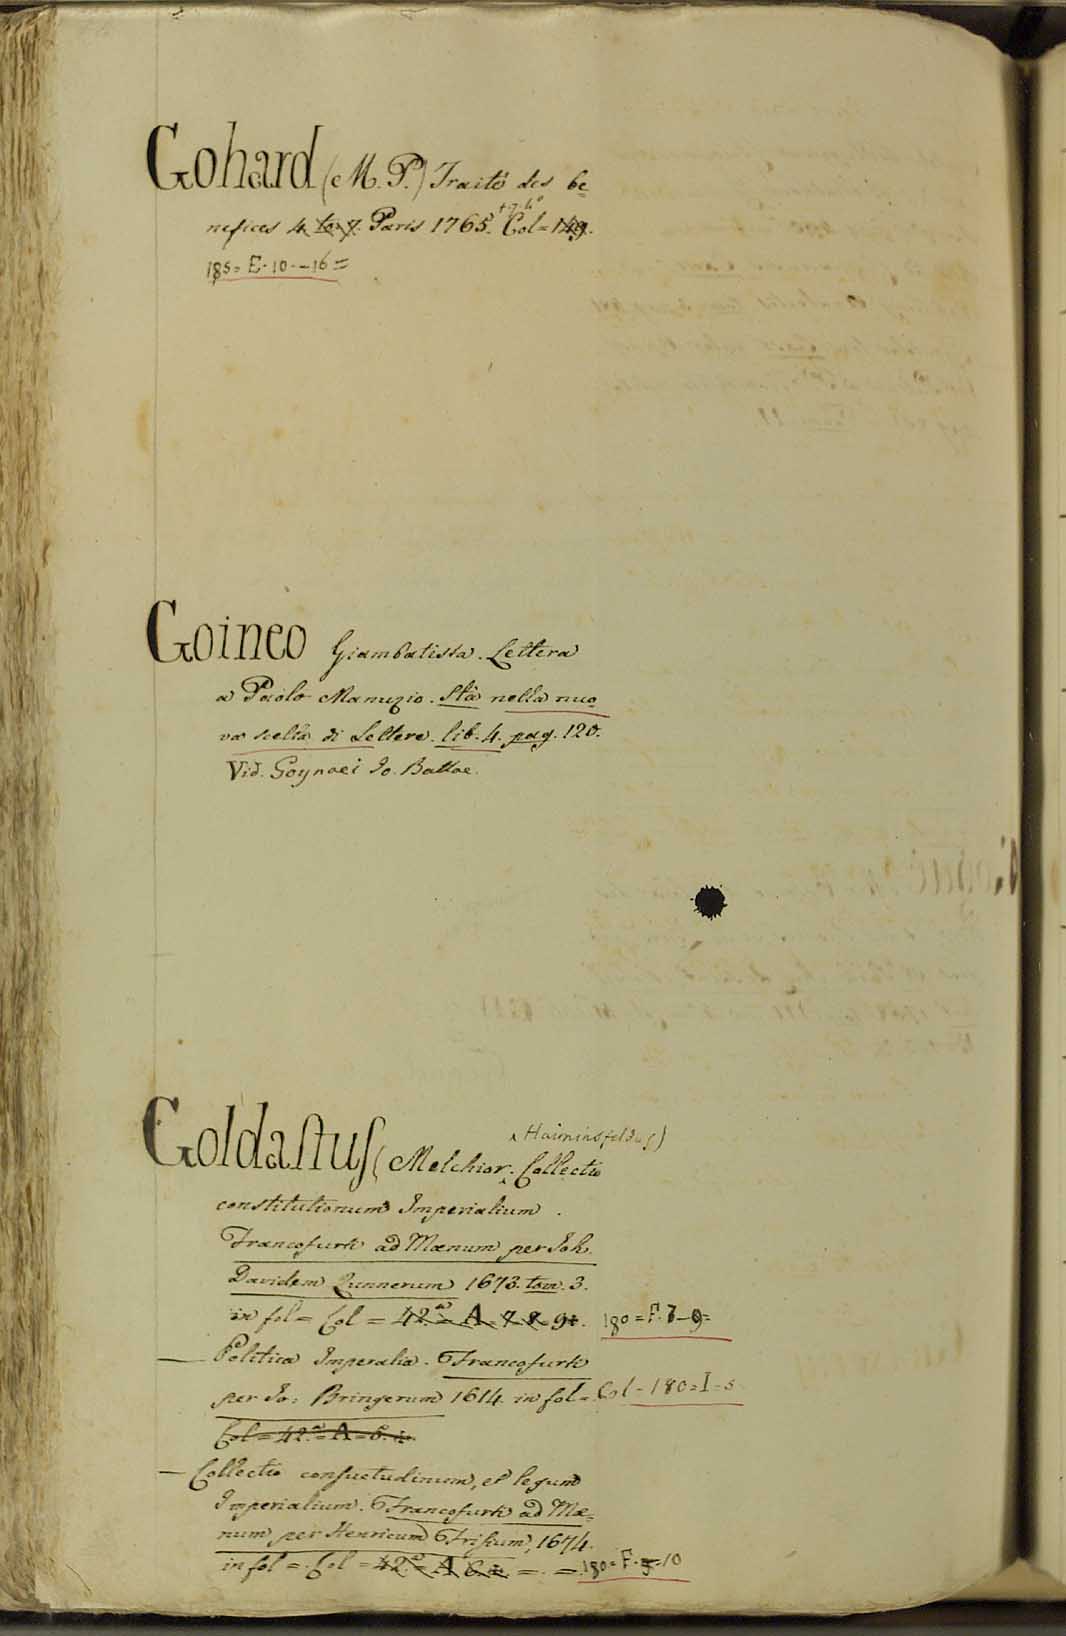 Gohard (M. P.) Traité des be
nefices 4. to. 7. Paris 1765. Col = 149.
185 = E. 10. - 16 =
Goineo Giambatista. Lettera
a Paolo Manuzio. Stà nella nuo
va scelta di Lettere. lib. 4. pag. 120.
Vid. Goynaei Io. Battae.
Haiminsfeldus)
Goldaſtuſ (Melchior. Collectio
constitutionum Imperialium.
Francofurti ad Mœnum per Joh.
Davidem Zunnerum 1673. tom. 3.
in fol = Col = 42.a = A = 7. 8. 9. 180 = F. 7 - 9 =
— Politica Imperalia. Francofurti
per Jo: Bringerum 1614. in fol = Col = 180 = I = 5
Col = 42.a = A = 6.
— Collectio conſuetudinum, et legum
Imperialium. Francofurti ad Mœ=
num per Henricum Friſium, 1674.
in fol = Col = 42.a = A 6. = . = 180 = F. 10